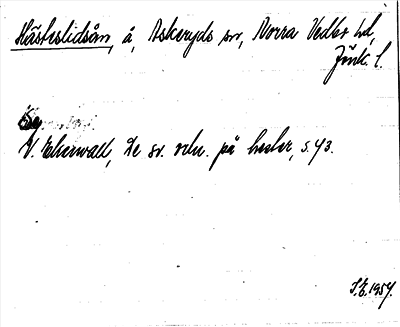 Hästeslidsån, å, Askeryds sn, Norra Vedbo hd,
Jönk. l.
V. Ekenvall, De sv. ortn. på hester, s. 43.
S.E. 1957.